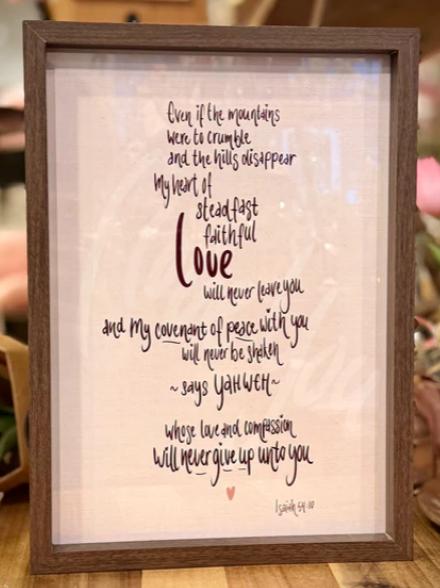 Even if the mountains
were to crumble
and the hills disappear
My heart of
steadfast
faithful
love
will never leave you
and My covenant of peace with you
will never be shaken
~ says YAHWEH ~
whose love and compassion
will never give up unto you
Isaiah 54:10